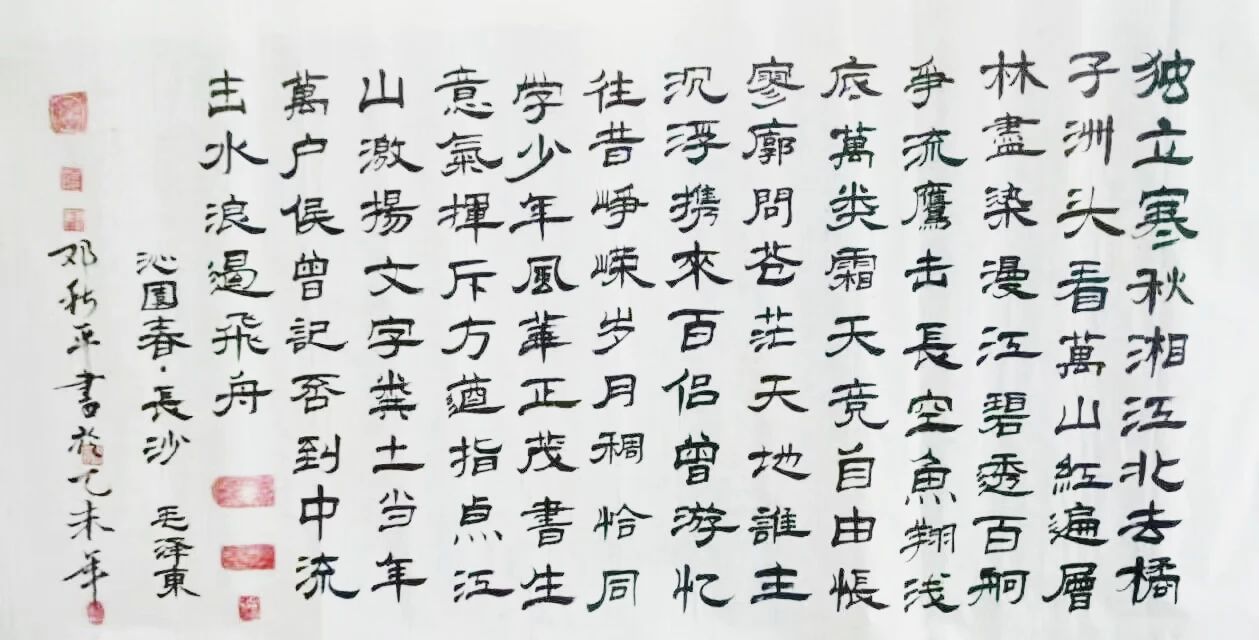 独立寒秋湘江北去橘
子洲头看萬山紅遍層
林盡染漫江碧透百舸
爭流鷹击長空魚翔浅
底萬类霜天竟自由悵
廖廓問苍茫天地誰主
沉浮携來百侣曾游忆
往昔崢嵘岁月稠恰同
学少年風華正茂書生
意氣揮斥方遒指点江
山激揚文字粪土当年
萬户侯曾記否到中流
击水浪遏飛舟
沁園春·長沙 毛泽東
邓秋平書於乙未年